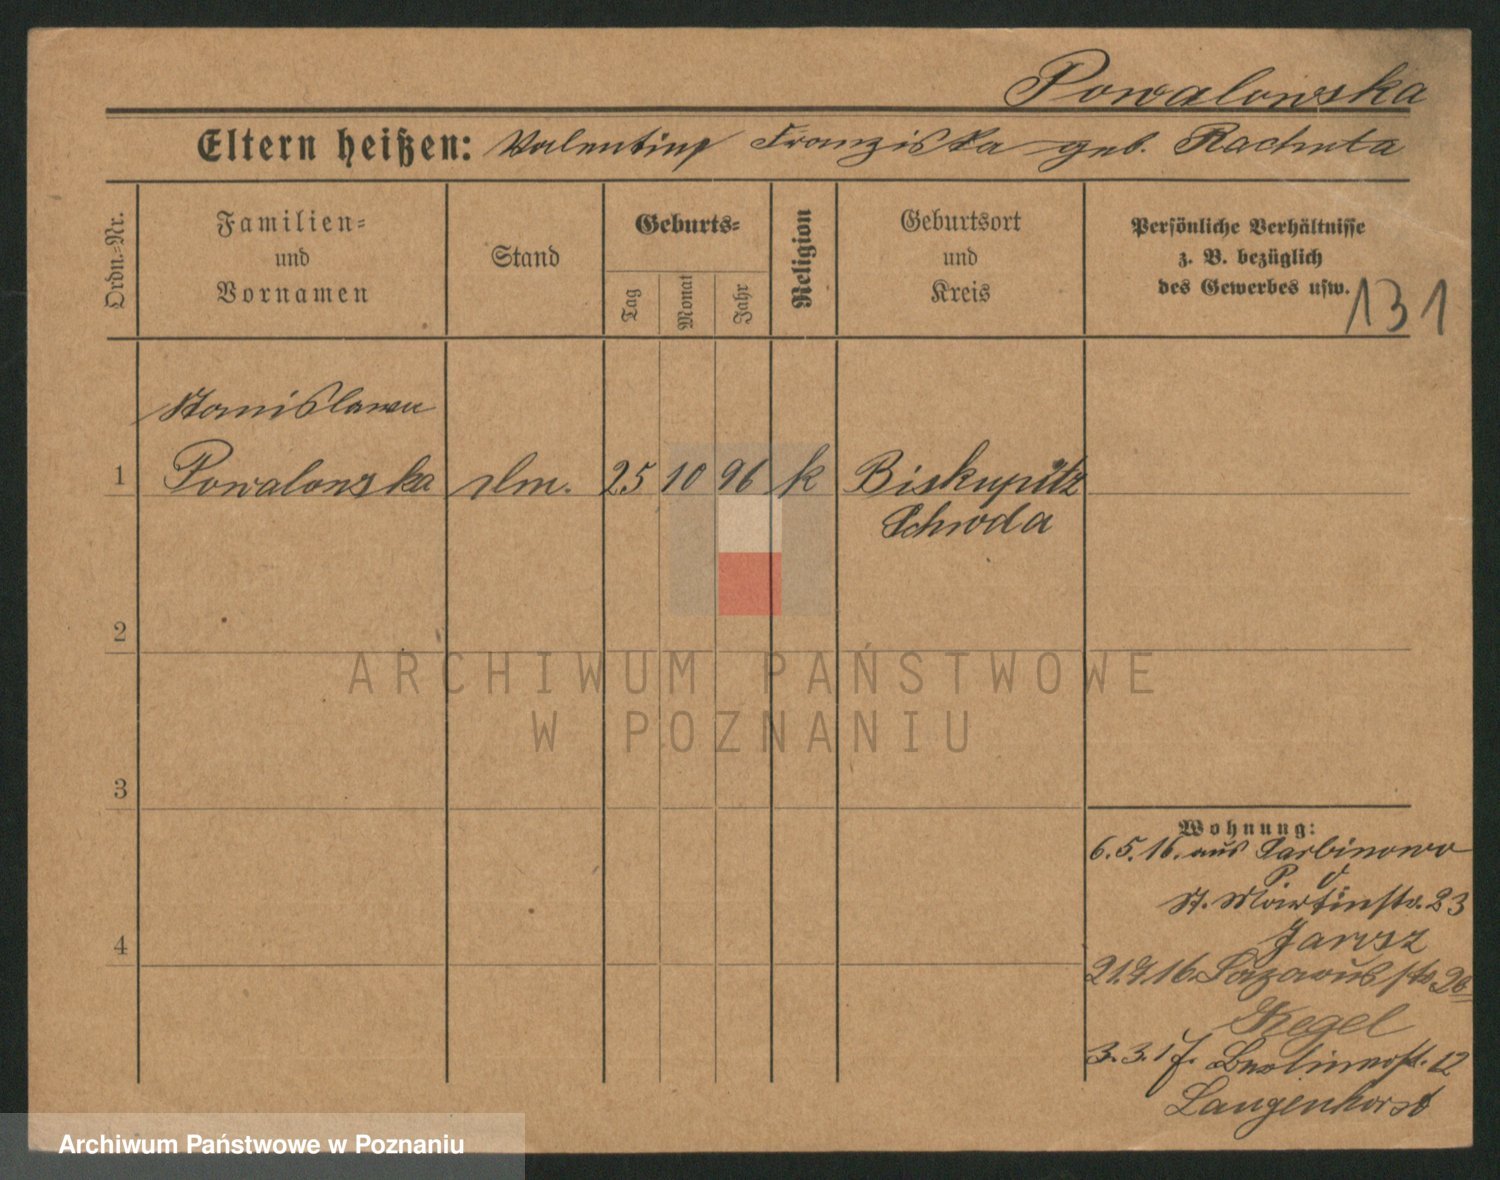 Powalowska
Eltern heißen: Valentin Franziska geb. Rachuta
Ordn.-Nr.
Familien-
und
Vornamen
Stand
Geburts-
Tag
Monat
Jahr
Religion
Geburtsort
und
Kreis
Persönliche Verhältnisse
z. B. bezüglich
des Gewerbes usw.
131
Stanislawa
1 Powalowska 25 10 96 k Biskupitz
Schroda
2
3
4
Wohnung:
6.5.16. aus Sarbinowo
St. Martinstr. 23
Jarosz
21.9.16. Lazarusstr. 26
Kegel
3.3.17. Berlinerstr. 12
Langenhorst
ARCHIWUM PAŃSTWOWE
W POZNANIU
Archiwum Państwowe w Poznaniu